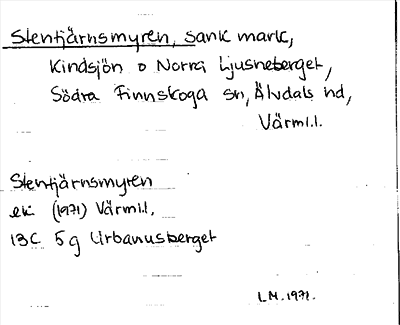 Stentjärnsmyren, sank mark,
Kindsjön o Norra Ljusneberget,
Södra Finnskoga sn, Älvdals hd,
Värml.l.
Stentjärnsmyren
ek (1971) Värml.l,
13C 5g Urbanusberget
LM.1971.